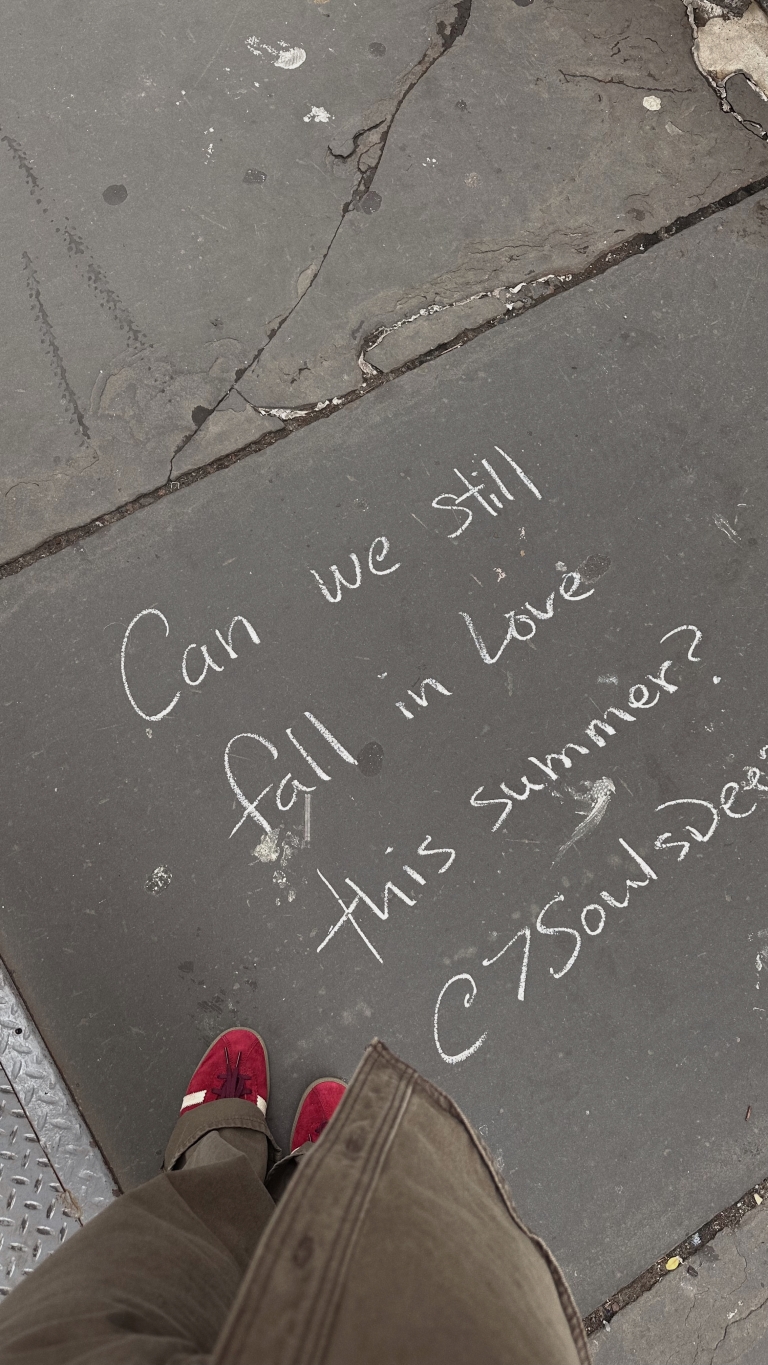 Can we still
fall in love
this summer?
C7SoulsDeep